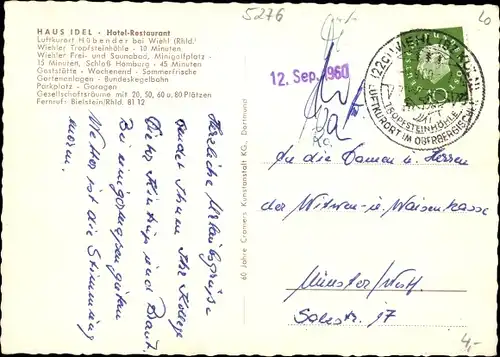 5276
HAUS IDEL - Hotel-Restaurant
Luftkurort Hübender bei Wiehl (Rhld.)
Wiehler Tropfsteinhöhle - 10 Minuten
Wiehler Frei- und Saunabad, Minigolfplatz -
15 Minuten, Schloß Homburg - 45 Minuten
Gaststätte - Wochenend - Sommerfrische
Gartenanlagen - Bundeskegelbahn
Parkplatz - Garagen
Gesellschaftsräume mit 20, 50, 60 u. 80 Plätzen
Fernruf: Bielstein/Rhld. 81 12
12. Sep. 1960
(22c) WIEHL
TROPFSTEINHÖHLE
LUFTKURORT IM OBERBERGISCHEN
Herzliche Urlaubsgrüße
sendet Ihnen Ihr Kollege
und Braut.
Bei einigermaßen gutem
Wetter ist die Stimmung
enorm.
60 Jahre Cramers Kunstanstalt KG., Dortmund
An die Damen u. Herren
der Witwen- u. Waisenkasse
Münster/Westf.
17
4,-